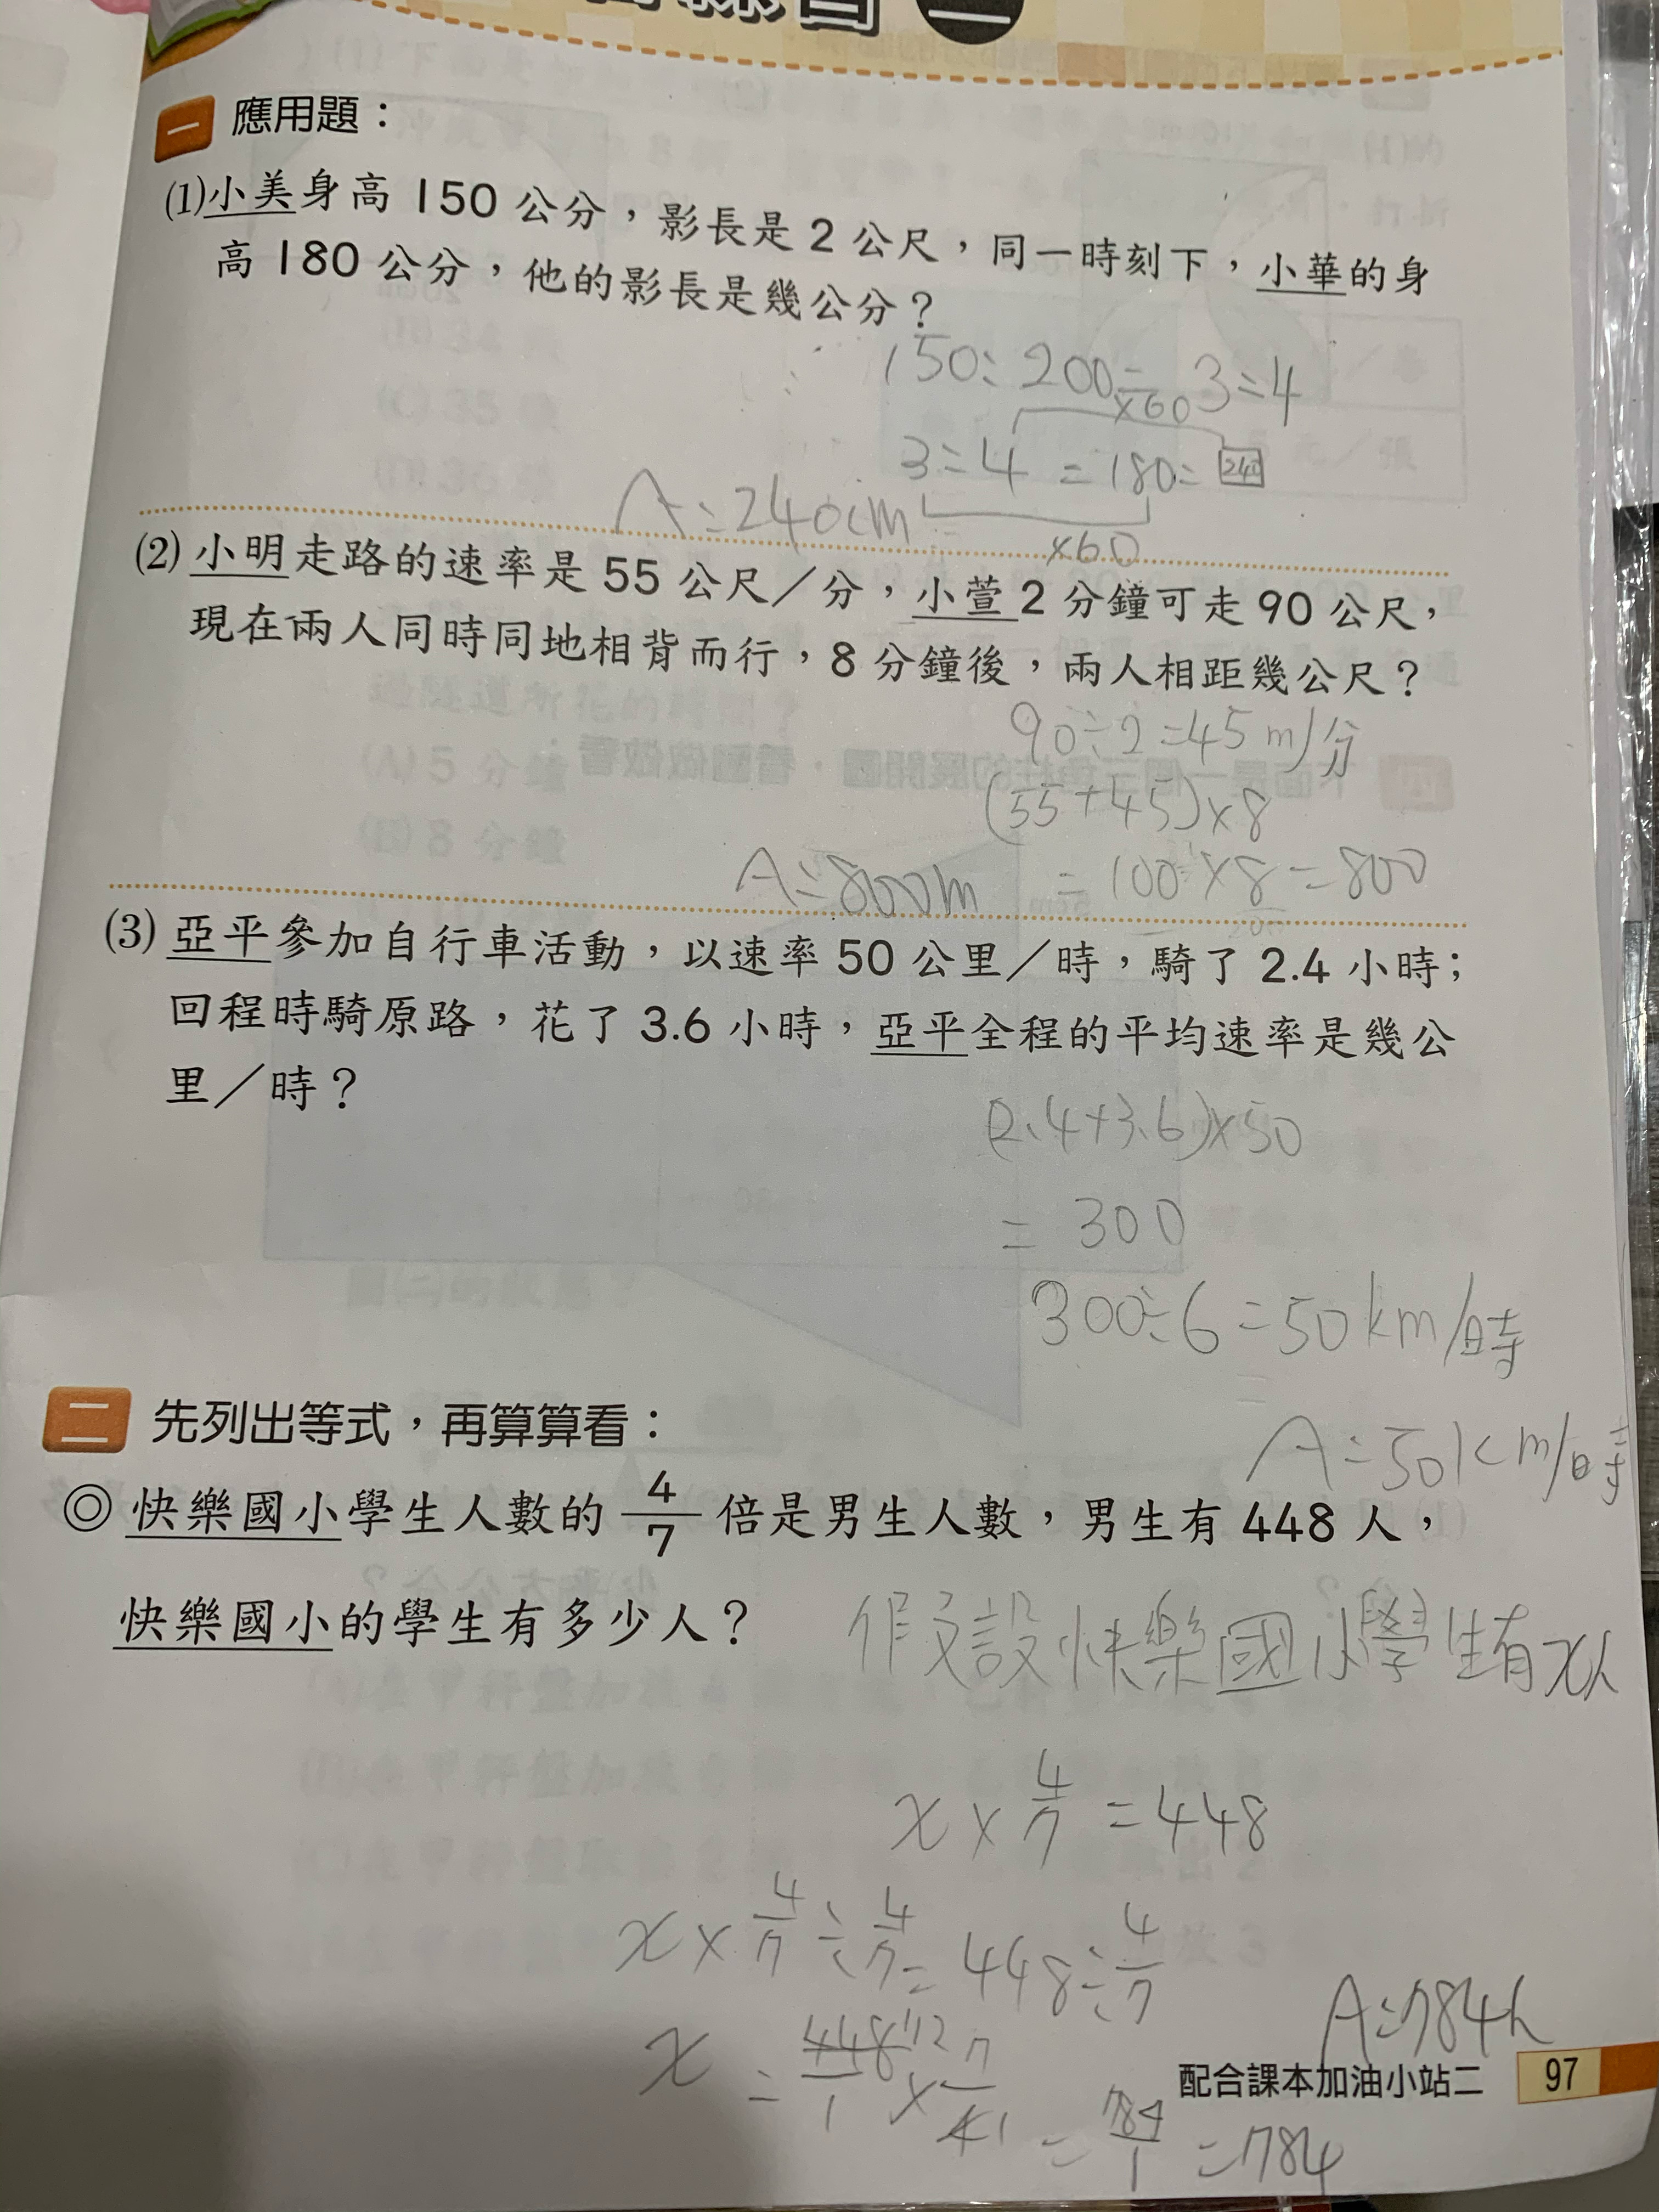 一 應用題：
(1)小美身高 150 公分，影長是 2 公尺，同一時刻下，小華的身
高 180 公分，他的影長是幾公分？
150:200= 3:4
×60
3:4 = 180:240
A:240cm
×60
(2) 小明走路的速率是 55 公尺／分，小萱 2 分鐘可走 90 公尺，
現在兩人同時同地相背而行，8 分鐘後，兩人相距幾公尺？
90÷2=45m/分
(55+45)×8
A:800m = 100×8=800
(3) 亞平參加自行車活動，以速率 50 公里／時，騎了 2.4 小時；
回程時騎原路，花了 3.6 小時，亞平全程的平均速率是幾公
里／時？
(2.4+3.6)×50
= 300
300÷6=50km/時
A:50km/時
二 先列出等式，再算算看：
◎ 快樂國小學生人數的 4/7 倍是男生人數，男生有 448 人，
快樂國小的學生有多少人？
假設快樂國小學生有x人
x × 4/7 = 448
x × 4/7 ÷ 4/7 = 448 ÷ 4/7
A:784人
x = 448/1 112 × 7/4 1 = 784/1 = 784
配合課本加油小站二 97